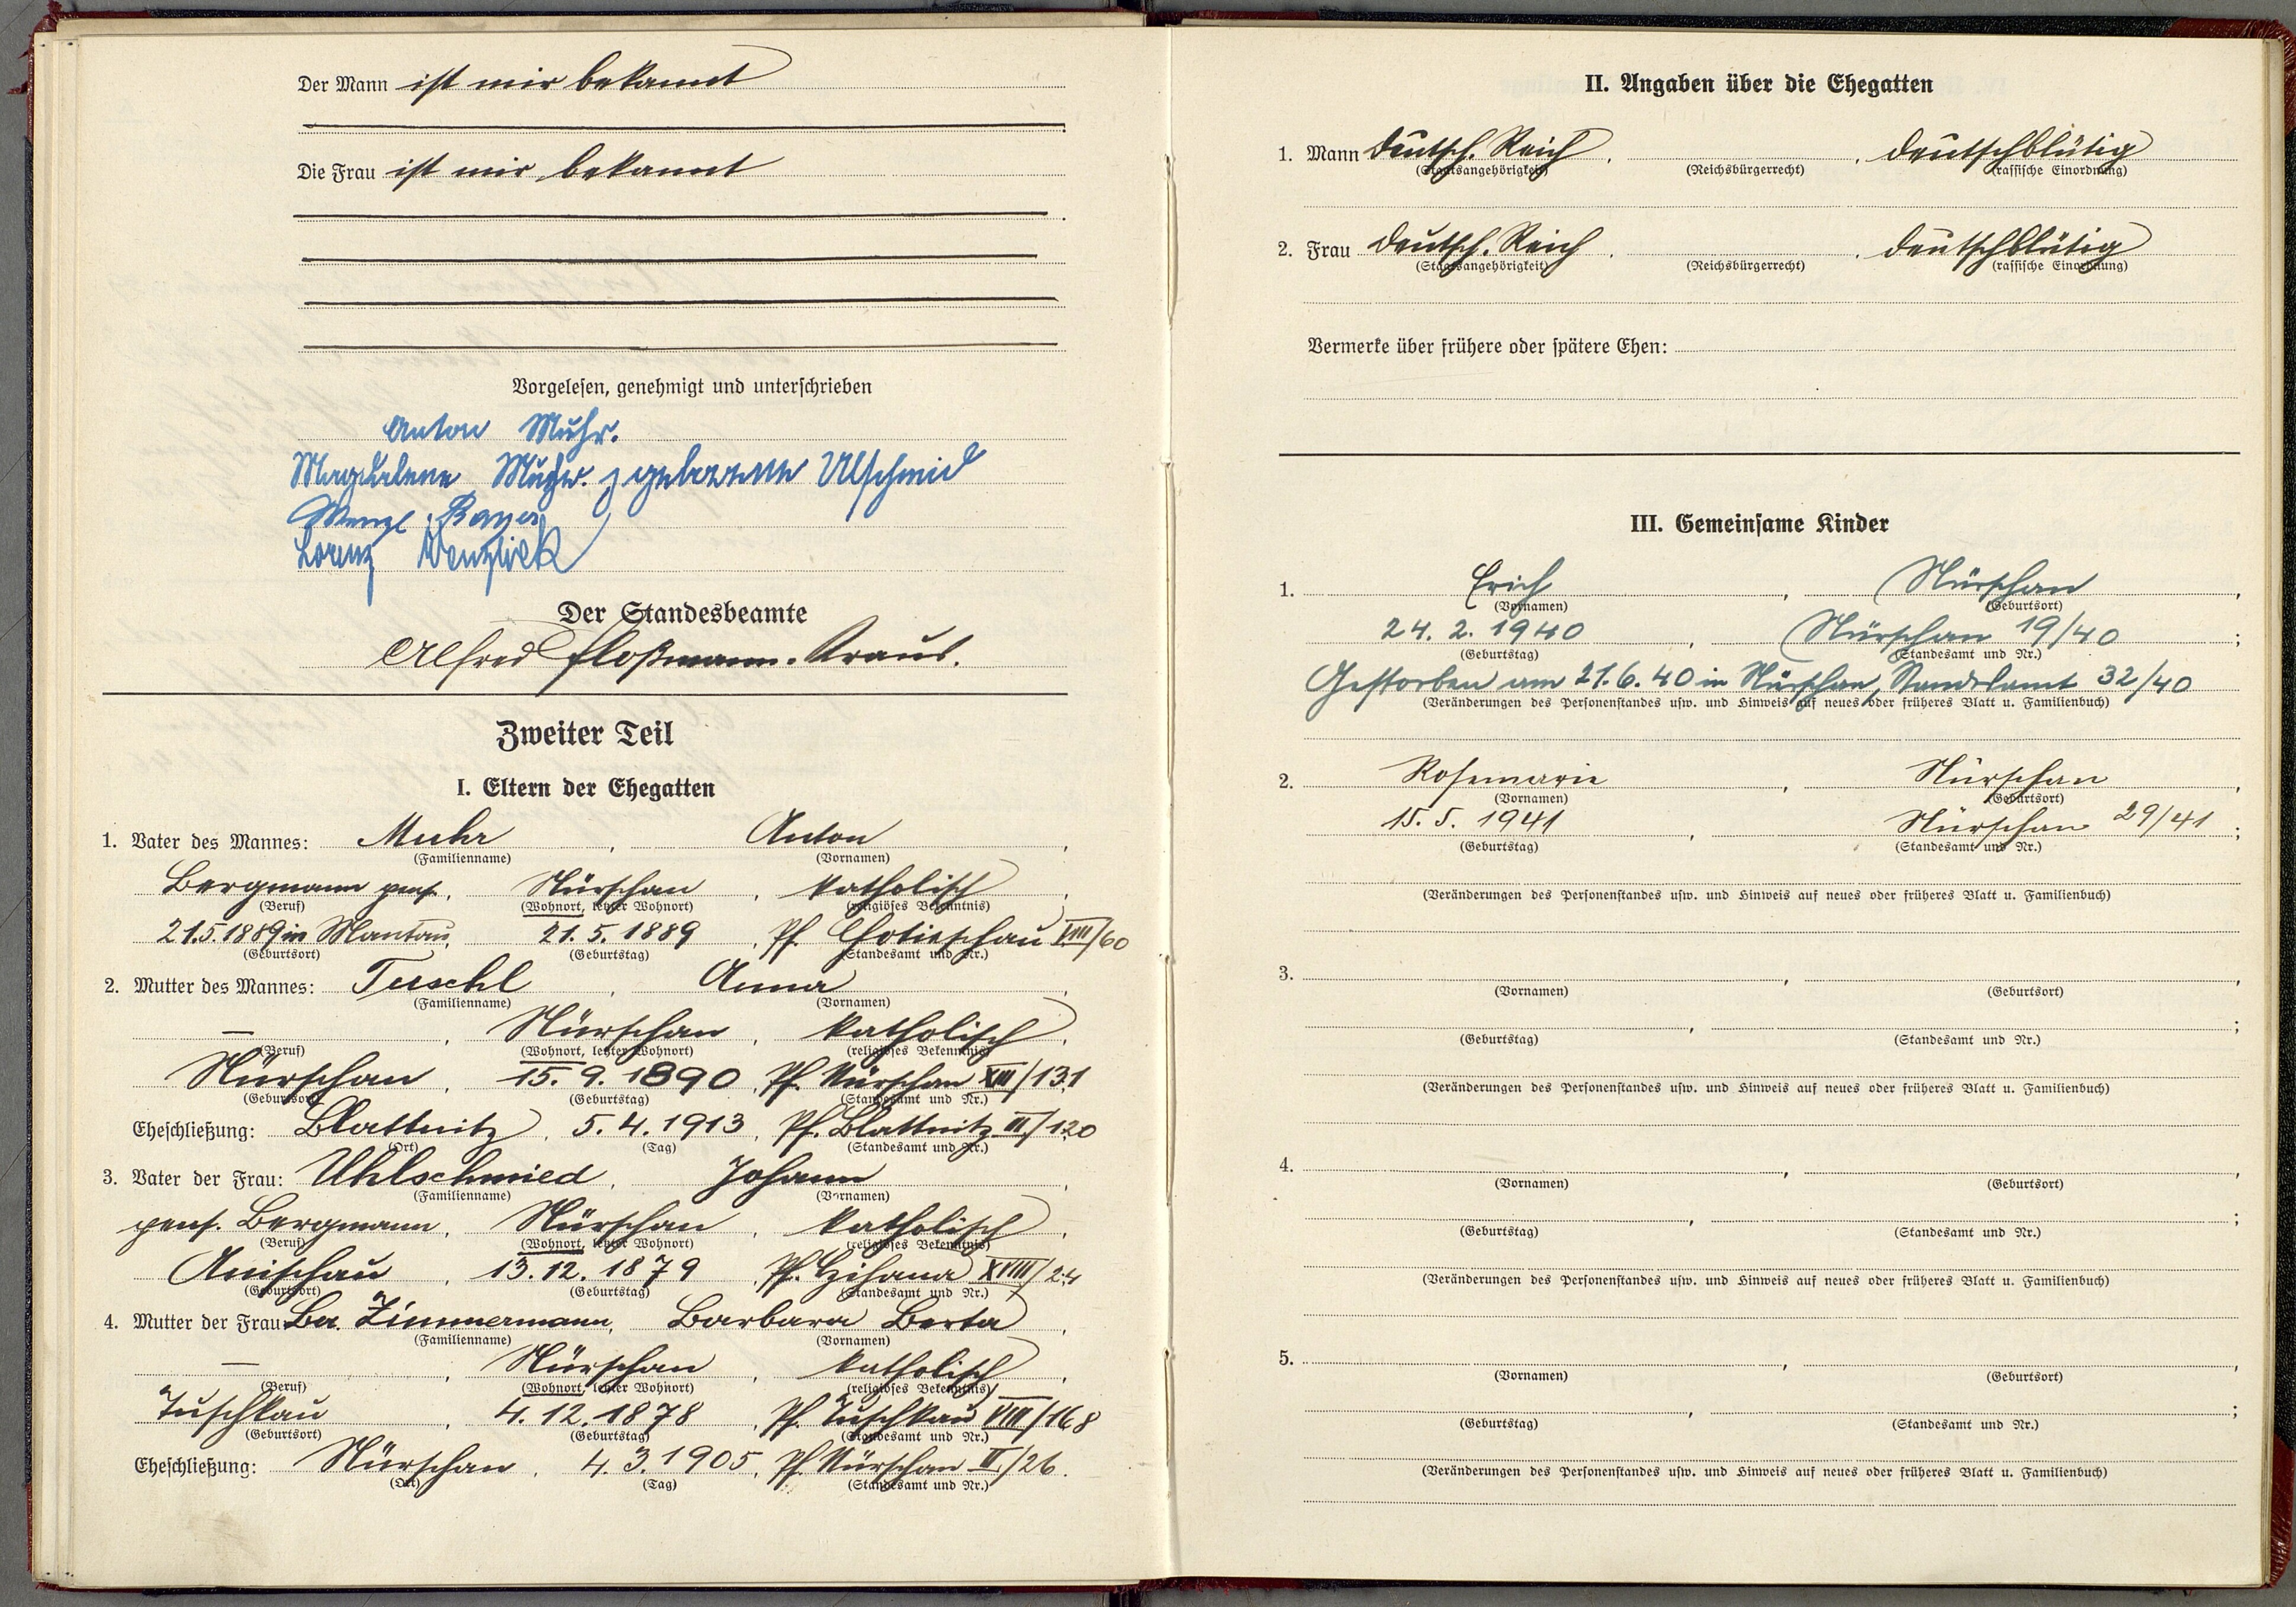 Der Mann ist mir bekannt
Die Frau ist mir bekannt
Vorgelesen, genehmigt und unterschrieben
Anton Muhr.
Magdalena Muhr. geborene Ulschmid
Wenzl Bayer
Lorenz
Der Standesbeamte
Alfred Floßmann-Kraus.
Zweiter Teil
I. Eltern der Ehegatten
1. Vater des Mannes: Muhr , Anton ,
(Familienname) (Vornamen)
Bergmann pens. , Nürschan , katholisch ,
(Beruf) (Wohnort, letzter Wohnort) (religiöses Bekenntnis)
21.5.1889 in Mantau, 21. 5. 1889 , Pf. Chotieschau VIII/60
(Geburtsort) (Geburtstag) (Standesamt und Nr.)
2. Mutter des Mannes: Tuschl , Anna ,
(Familienname) (Vornamen)
— , Nürschan , katholisch ,
(Beruf) (Wohnort, letzter Wohnort) (religiöses Bekenntnis)
Nürschan , 15. 9. 1890 , Pf. Nürschan XIII/131
(Geburtsort) (Geburtstag) (Standesamt und Nr.)
Eheschließung: Blattnitz , 5. 4. 1913 , Pf. Blattnitz III/120
(Ort) (Tag) (Standesamt und Nr.)
3. Vater der Frau: Uhlschmied , Johann ,
(Familienname) (Vornamen)
pens. Bergmann , Nürschan , katholisch ,
(Beruf) (Wohnort, letzter Wohnort) (religiöses Bekenntnis)
Auischau , 13. 12. 1879 , Pf. XVIII/24
(Geburtsort) (Geburtstag) (Standesamt und Nr.)
4. Mutter der Frau: Zimmermann, Barbara Berta ,
(Familienname) (Vornamen)
— , Nürschan , katholisch ,
(Beruf) (Wohnort, letzter Wohnort) (religiöses Bekenntnis)
Tuschkau , 4. 12. 1878 , Pf. Tuschkau VIII/168
(Geburtsort) (Geburtstag) (Standesamt und Nr.)
Eheschließung: Nürschan , 4. 3. 1905 , Pf. Nürschan II/26.
(Ort) (Tag) (Standesamt und Nr.)
II. Angaben über die Ehegatten
1. Mann deutsch. Reich , , deutschblütig
(Staatsangehörigkeit) (Reichsbürgerrecht) (rassische Einordnung)
2. Frau deutsch. Reich , , deutschblütig
(Staatsangehörigkeit) (Reichsbürgerrecht) (rassische Einordnung)
Vermerke über frühere oder spätere Ehen:
III. Gemeinsame Kinder
1. Erich , Nürschan ,
(Vornamen) (Geburtsort)
24. 2. 1940 , Nürschan 19/40 ;
(Geburtstag) (Standesamt und Nr.)
Gestorben am 21. 6. 40 in Nürschan, Standesamt 32/40
(Veränderungen des Personenstandes usw. und Hinweis auf neues oder früheres Blatt u. Familienbuch)
2. Rosemarie , Nürschan ,
(Vornamen) (Geburtsort)
15. 5. 1941 , Nürschan 29/41 ;
(Geburtstag) (Standesamt und Nr.)
(Veränderungen des Personenstandes usw. und Hinweis auf neues oder früheres Blatt u. Familienbuch)
3. , ,
(Vornamen) (Geburtsort)
, ;
(Geburtstag) (Standesamt und Nr.)
(Veränderungen des Personenstandes usw. und Hinweis auf neues oder früheres Blatt u. Familienbuch)
4. , ,
(Vornamen) (Geburtsort)
, ;
(Geburtstag) (Standesamt und Nr.)
(Veränderungen des Personenstandes usw. und Hinweis auf neues oder früheres Blatt u. Familienbuch)
5. , ,
(Vornamen) (Geburtsort)
, ;
(Geburtstag) (Standesamt und Nr.)
(Veränderungen des Personenstandes usw. und Hinweis auf neues oder früheres Blatt u. Familienbuch)